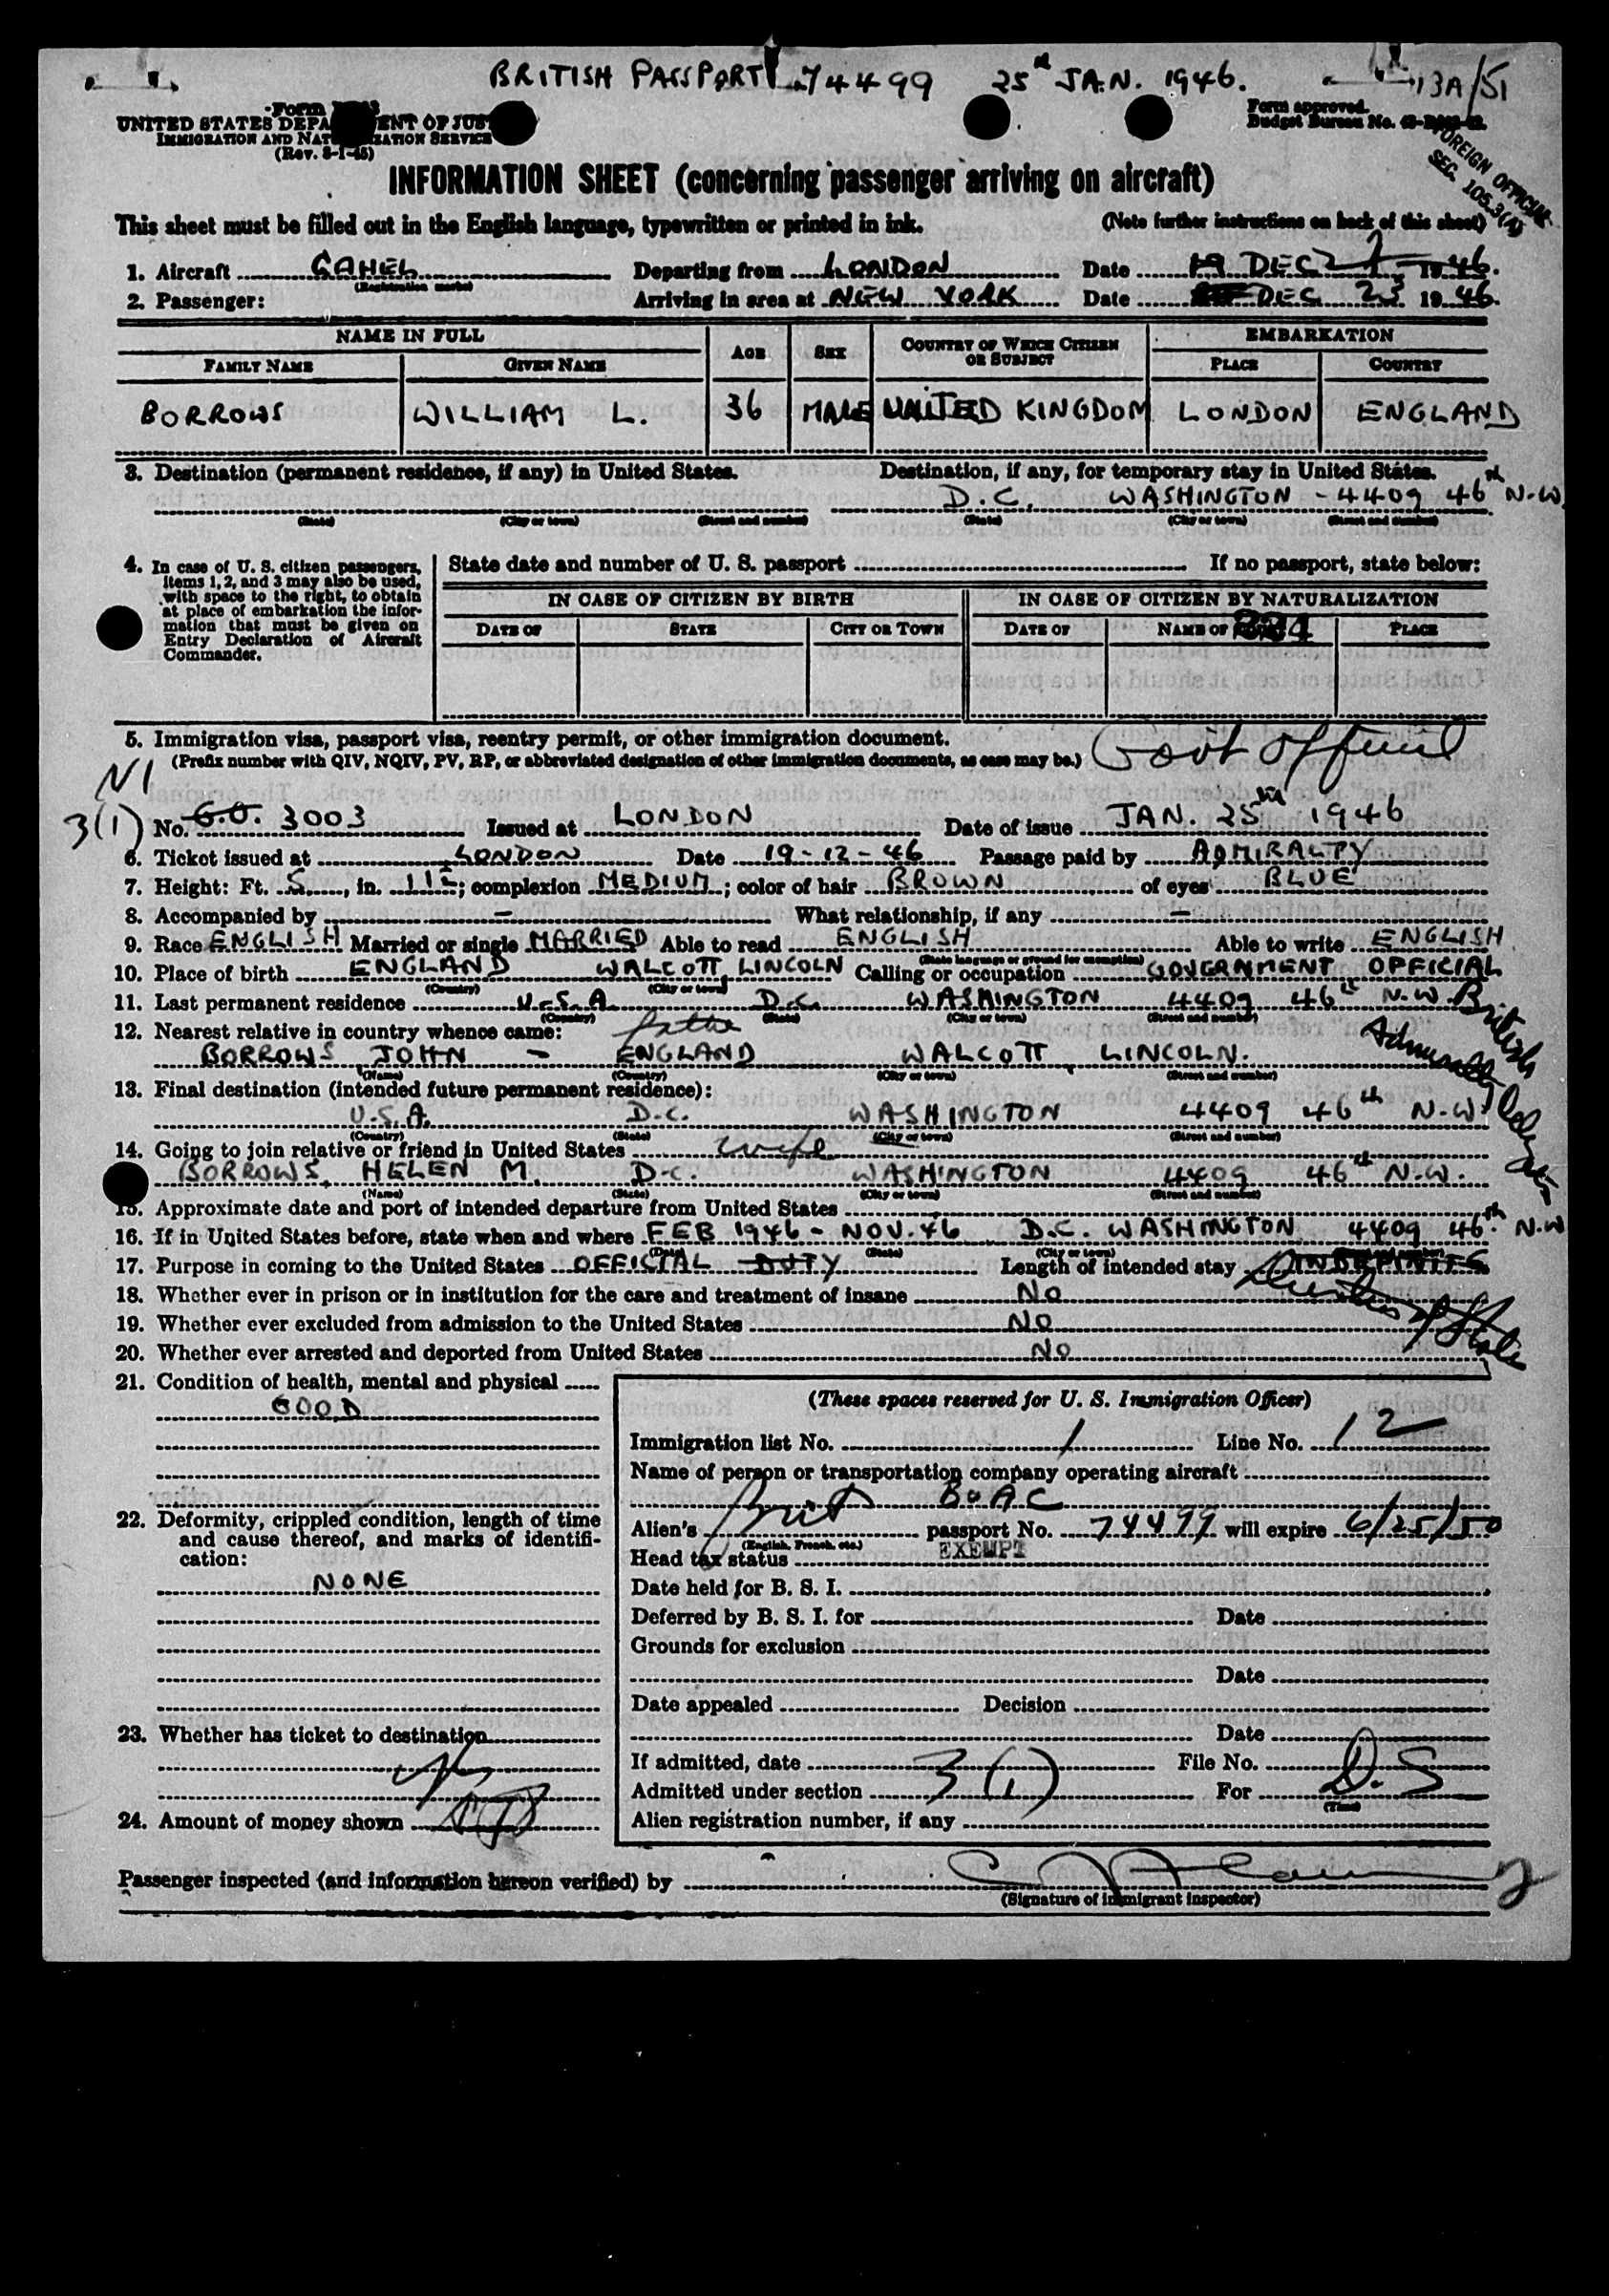 BRITISH PASSPORT 74499 25th JAN. 1946. 13A/51
Form
UNITED STATES DEPARTMENT OF JUSTICE
IMMIGRATION AND NATURALIZATION SERVICE
(Rev. 3-1-45)
Form approved.
Budget Bureau No.
FOREIGN OFFICIAL
SEC.
INFORMATION SHEET (concerning passenger arriving on aircraft)
This sheet must be filled out in the English language, typewritten or printed in ink. (Note further instructions on back of this sheet)
1. Aircraft GAHEL Departing from LONDON Date 19 DEC 1946.
(Registration marks)
2. Passenger: Arriving in area at NEW YORK Date DEC 23 1946.
NAME IN FULL AGE SEX COUNTRY OF WHICH CITIZEN OR SUBJECT EMBARKATION
FAMILY NAME GIVEN NAME PLACE COUNTRY
BORROWS WILLIAM L. 36 MALE UNITED KINGDOM LONDON ENGLAND
3. Destination (permanent residence, if any) in United States. Destination, if any, for temporary stay in United States.
D.C. WASHINGTON - 4409 46th N.W.
(State) (City or town) (Street and number) (State) (City or town) (Street and number)
4. In case of U. S. citizen passengers, items 1, 2, and 3 may also be used, with space to the right, to obtain at place of embarkation the information that must be given on Entry Declaration of Aircraft Commander.
State date and number of U. S. passport If no passport, state below:
IN CASE OF CITIZEN BY BIRTH IN CASE OF CITIZEN BY NATURALIZATION
DATE OF STATE CITY OR TOWN DATE OF NAME OF PLACE
5. Immigration visa, passport visa, reentry permit, or other immigration document.
(Prefix number with QIV, NQIV, PV, RP, or abbreviated designation of other immigration documents, as case may be.) Govt Official
NI
3(1) No. G.O. 3003 Issued at LONDON Date of issue JAN. 25th 1946
6. Ticket issued at LONDON Date 19-12-46 Passage paid by ADMIRALTY
7. Height: Ft. 5, in. 11½; complexion MEDIUM; color of hair BROWN of eyes BLUE
8. Accompanied by - What relationship, if any -
9. Race ENGLISH Married or single MARRIED Able to read ENGLISH Able to write ENGLISH
(State language or ground for exemption)
10. Place of birth ENGLAND WALCOTT, LINCOLN Calling or occupation GOVERNMENT OFFICIAL
(Country) (City or town)
11. Last permanent residence U.S.A. D.C. WASHINGTON 4409 46th N.W.
(Country) (State) (City or town) (Street and number)
British
Admiralty
12. Nearest relative in country whence came: father
BORROWS JOHN - ENGLAND WALCOTT LINCOLN.
(Name) (Country) (City or town) (Street and number)
13. Final destination (intended future permanent residence):
U.S.A. D.C. WASHINGTON 4409 46th N.W.
(Country) (State) (City or town) (Street and number)
14. Going to join relative or friend in United States wife
BORROWS, HELEN M. D.C. WASHINGTON 4409 46th N.W.
(Name) (State) (City or town) (Street and number)
15. Approximate date and port of intended departure from United States
16. If in United States before, state when and where FEB 1946 - NOV. 46 D.C. WASHINGTON 4409 46th N.W
(Date) (State) (City or town)
17. Purpose in coming to the United States OFFICIAL DUTY Length of intended stay INDEFINITE
Duration of Status
18. Whether ever in prison or in institution for the care and treatment of insane NO
19. Whether ever excluded from admission to the United States NO
20. Whether ever arrested and deported from United States NO
21. Condition of health, mental and physical
GOOD
22. Deformity, crippled condition, length of time and cause thereof, and marks of identification:
NONE
23. Whether has ticket to destination
24. Amount of money shown
(These spaces reserved for U. S. Immigration Officer)
Immigration list No. 1 Line No. 12
Name of person or transportation company operating aircraft
BOAC
Alien's Brit passport No. 74499 will expire 6/25/50
(English, French, etc.)
Head tax status EXEMPT
Date held for B. S. I.
Deferred by B. S. I. for Date
Grounds for exclusion
Date
Date appealed Decision
Date
If admitted, date File No.
Admitted under section 3(1) For D.S
(Time)
Alien registration number, if any
Passenger inspected (and information hereon verified) by
(Signature of immigrant inspector)